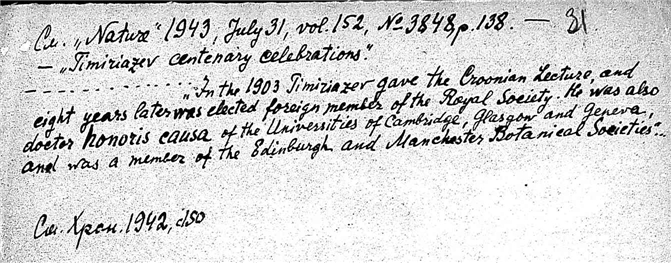 См. „Nature" 1943, July 31, vol. 152, № 3848, p. 138. — 31
— „Timiriazev centenary celebrations".
„In the 1903 Timiriazev gave the Croonian Lecture, and
eight years later was elected foreign member of the Royal Society. He was also
doctor honoris causa of the Universities of Cambridge, Glasgow and Geneva,
and was a member of the Edinburgh and Manchester Botanical Societies".
См. Хрон. 1942,